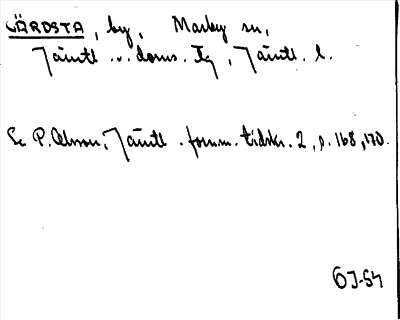 LÄRDSTA, by, Marby sn,
Jämtl. v. doms. Tg, Jämtl. l.
Se P. Olsson, Jämtl. fornm. tidskr. 2, s. 168, 170.
ÖJ-54